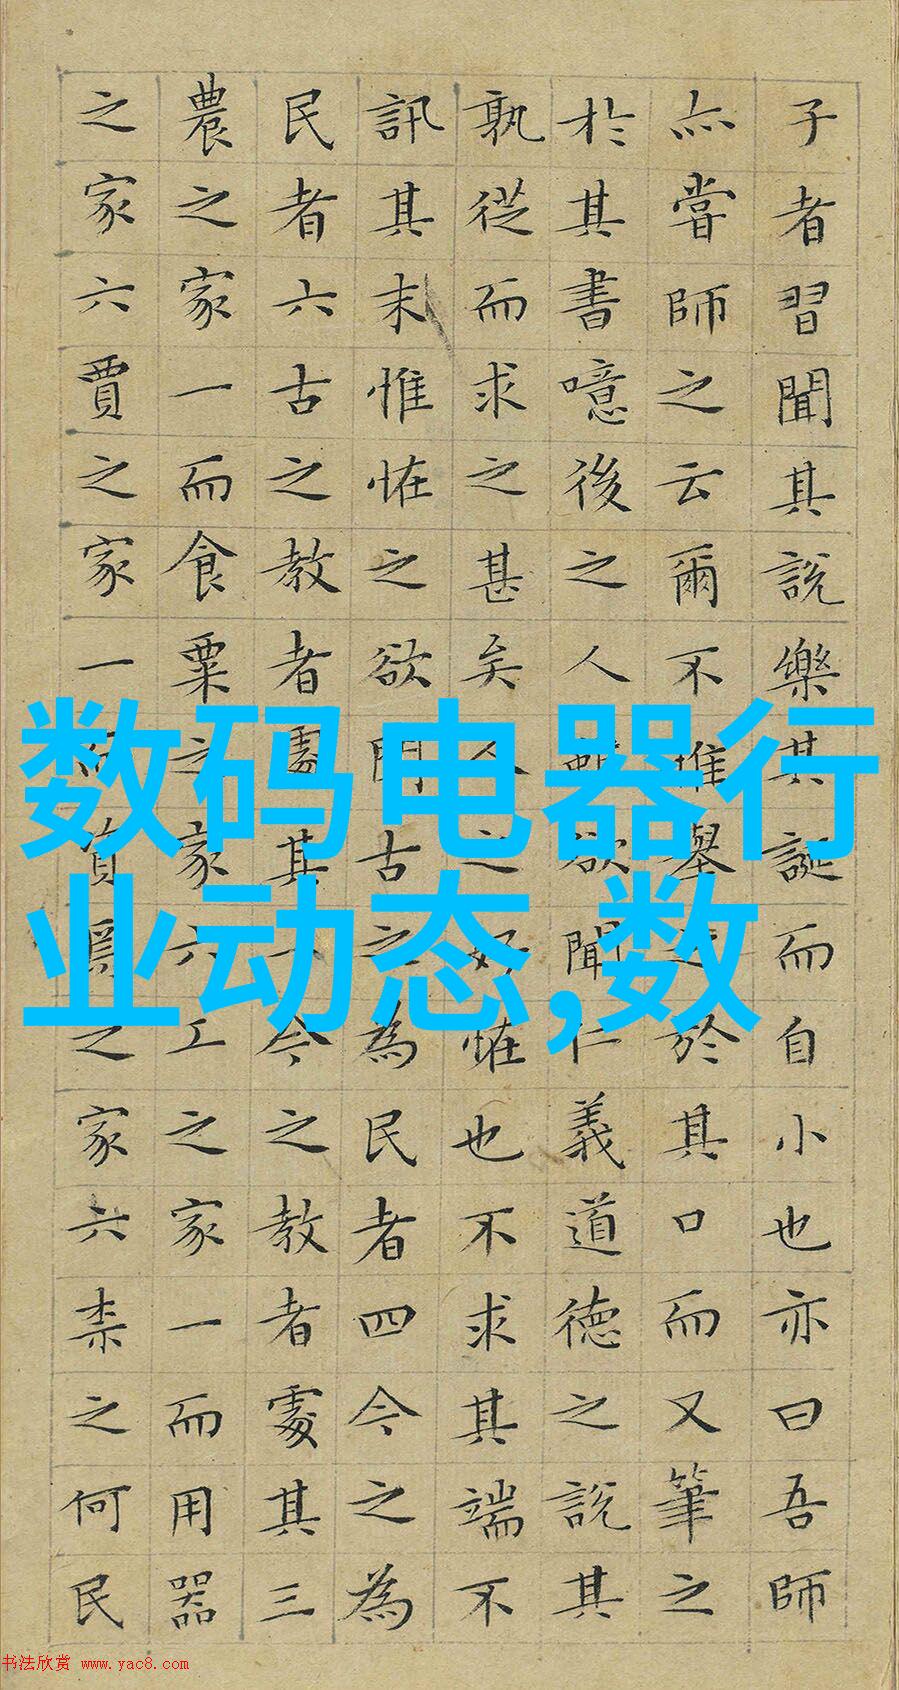 子者習聞其說樂其誕而自小也亦曰吾師
亦嘗師之云爾不惟舉之於其口而又筆之
於其書噫後之人雖欲聞仁義道德之說其
孰從而求之甚矣人之好恠也不求其端不
訊其末惟恠之欲聞古之為民者四今之為
民者六古之教者處其一今之教者處其三
農之家一而食粟之家六工之家一而用器
之家六賈之家一而資焉之家六柰之何民
数码电器行
业动态,数
书法欣赏 www.yac8.com